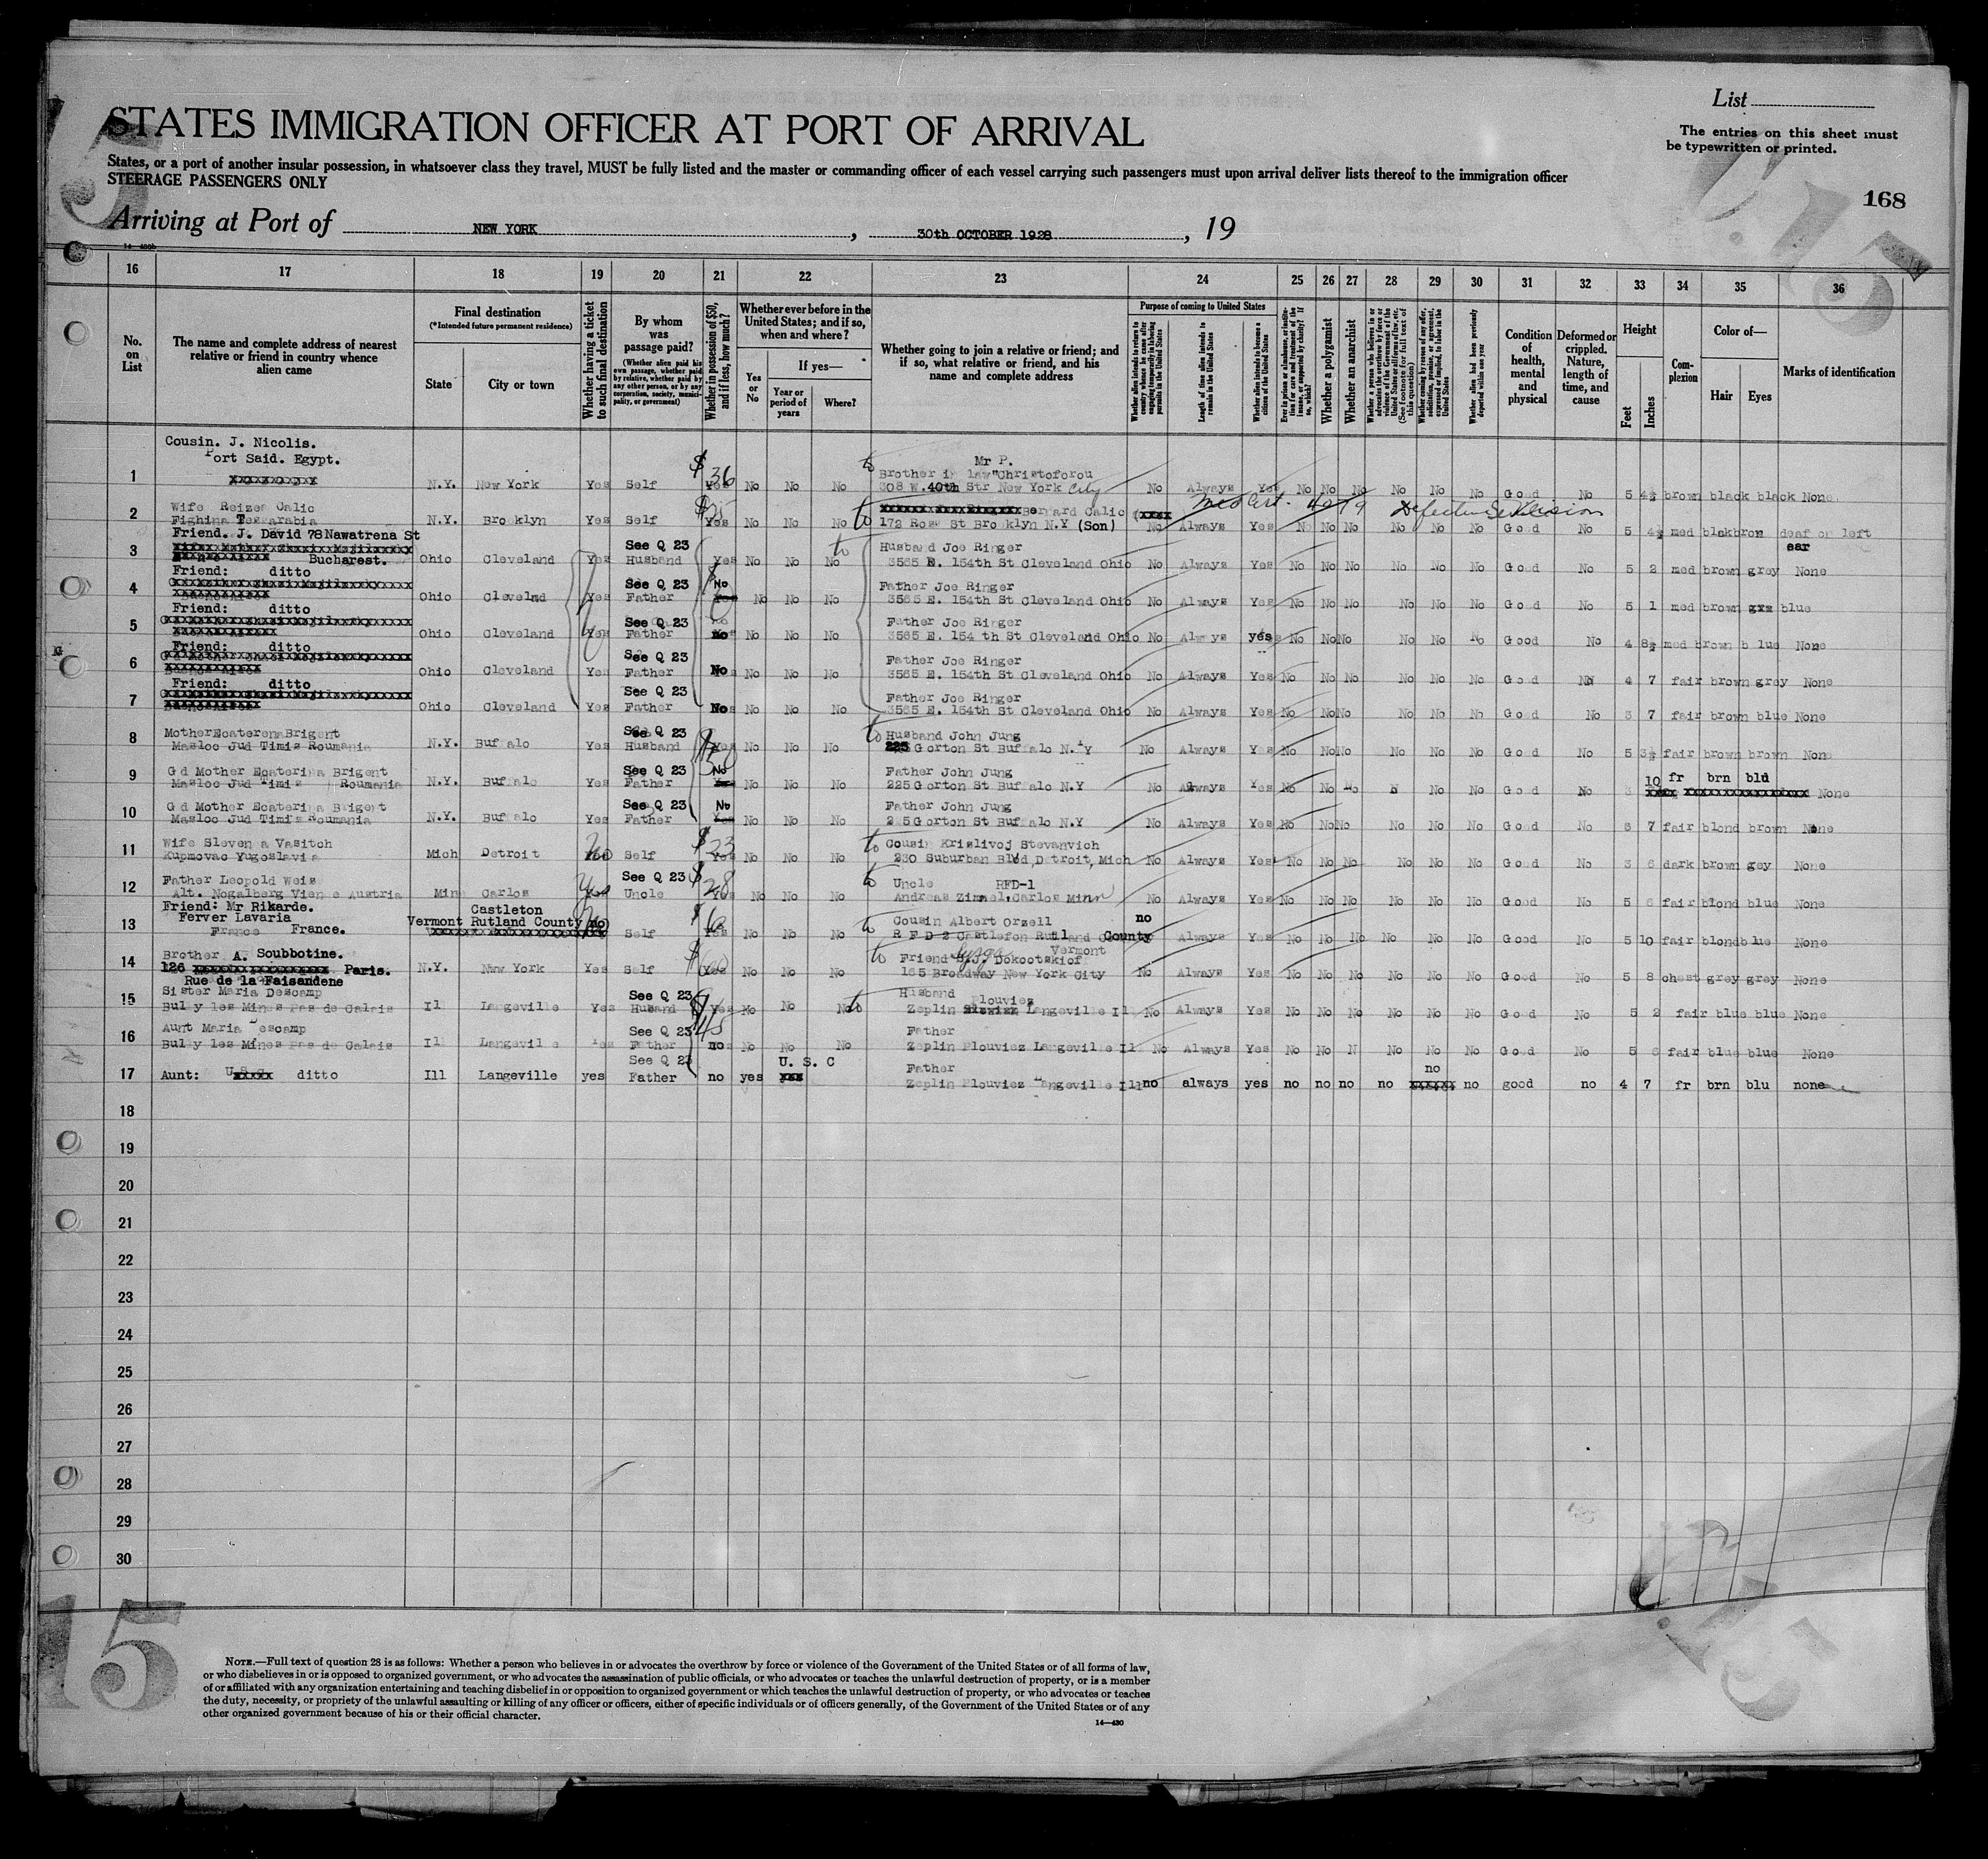 List
The entries on this sheet must
be typewritten or printed.
STATES IMMIGRATION OFFICER AT PORT OF ARRIVAL
States, or a port of another insular possession, in whatsoever class they travel, MUST be fully listed and the master or commanding officer of each vessel carrying such passengers must upon arrival deliver lists thereof to the immigration officer
STEERAGE PASSENGERS ONLY
168
Arriving at Port of NEW YORK, 30th OCTOBER 1928, 19
16 17 18 19 20 21 22 23 24 25 26 27 28 29 30 31 32 33 34 35 36
No. on List
The name and complete address of nearest relative or friend in country whence alien came
Final destination
(*Intended future permanent residence)
State
City or town
Whether having a ticket to such final destination
By whom was passage paid?
(Whether alien paid his own passage, whether paid by relative, whether paid by any other person, or by any corporation, society, municipality, or government)
Whether in possession of $50, and if less, how much?
Whether ever before in the United States; and if so, when and where?
Yes or No
If yes—
Year or period of years
Where?
Whether going to join a relative or friend; and if so, what relative or friend, and his name and complete address
Purpose of coming to United States
Whether alien intends to return to country whence he came after engaging temporarily in laboring pursuits in the United States
Length of time alien intends to remain in the United States
Whether alien intends to become a citizen of the United States
Ever in prison or almshouse, or institution for care and treatment of the insane, or supported by charity? If so, which?
Whether a polygamist
Whether an anarchist
Whether a person who believes in or advocates the overthrow by force or violence of the Government of the United States or all forms of law, etc. (See footnote for full text of this question)
Whether coming by reason of any offer, solicitation, promise, or agreement, expressed or implied, to labor in the United States
Whether alien had been previously deported within one year
Condition of health, mental and physical
Deformed or crippled. Nature, length of time, and cause
Height
Feet
Inches
Complexion
Color of—
Hair
Eyes
Marks of identification
1 Cousin. J. Nicolis. Port Said. Egypt. N.Y. New York Yes Self $36 No No No to Brother in law Mr P. Christoforou 308 W. 40th Str New York City No Always Yes No No No No No No Good No 5 4½ brown black black None
2 Wife Reizea Calic N.Y. Brooklyn Yes Self Yes No No No to Bernard Calic 172 Rose St Brooklyn N.Y (Son) No Always Yes No No No No No No Good No 5 4½ med blak bron deaf on left ear
3 Friend. J. David 78 Nawatrena St Bucharest. Ohio Cleveland Yes See Q 23 Husband Yes No No No to Husband Joe Ringer 3565 E. 154th St Cleveland Ohio No Always Yes No No No No No No Good No 5 2 med brown grey None
4 Friend: ditto Ohio Cleveland Yes See Q 23 Father No No No No Father Joe Ringer 3565 E. 154th St Cleveland Ohio No Always Yes No No No No No No Good No 5 1 med brown blue
5 Friend: ditto Ohio Cleveland Yes See Q 23 Father no No No No Father Joe Ringer 3565 E. 154 th St Cleveland Ohio No Always yes No No No No No No Good No 4 8½ med brown blue None
6 Friend: ditto Ohio Cleveland Yes See Q 23 Father No No No No Father Joe Ringer 3565 E. 154th St Cleveland Ohio No Always Yes No No No No No No Good No 4 7 fair brown grey None
7 Friend: ditto Ohio Cleveland Yes See Q 23 Father No No No No Father Joe Ringer 3565 E. 154th St Cleveland Ohio No Always Yes No No No No No No Good No 3 7 fair brown blue None
8 Mother Ecaterena Brigent Masloc Jud Timis Roumania N.Y. Buffalo Yes See Q 23 Husband Yes No No No to Husband John Jung 225 Gorton St Buffalo N.Y No Always Yes No No No No No No Good No 5 3½ fair brown brown None
9 Gd Mother Ecaterina Brigent Masloc Jud Timis Roumania N.Y. Buffalo Yes See Q 23 Father No No No No Father John Jung 225 Gorton St Buffalo N.Y No Always Yes No No No No No No Good No 3 10 fr brn bld None
10 Gd Mother Ecaterina Brigent Masloc Jud Timis Roumania N.Y. Buffalo Yes See Q 23 Father No No No No Father John Jung 225 Gorton St Buffalo N.Y No Always Yes No No No No No No Good No 3 7 fair blond brown None
11 Wife Slevena Vasitch Kupmovac Yugoslavia Mich Detroit Self $23 Yes No No No to Cousin Krislivoj Stevanvich 230 Suburban Blvd, Detroit, Mich No Always Yes No No No No No No Good No 3 6 dark brown gey None
12 Father Leopold Weis Alt. Nogalberg Vienne Austria Min Carlos Yes See Q 23 Uncle $28 Yes No No No to Uncle RFD-1 Andreas Zimmel, Carlos Minn No Always Yes No No No No No No Good No 5 6 fair blond blue None
13 Friend: Mr Rikarde. Ferver Lavaria France. Castleton Vermont Rutland County no Self Yes No No No to Cousin Albert Orzell R F D 2 Castleton Rutland County Vermont no Always Yes No No No No No No Good No 5 10 fair blond blue None
14 Brother A. Soubbotine. 126 Rue de la Faisandene Paris. N.Y. New York Yes Self Yes No No No to Friend S.J. Dokootskiof 165 Broadway New York City No Always Yes No No No No No No Good No 5 8 chest grey grey None
15 Sister Maria Descamp Bully les Mines Pas de Calais Il Langeville Yes See Q 23 Husand $45 Yes No No No to Husband Zeplin Plouviez Langeville Il No Always Yes No No No No No No Good No 5 2 fair blue blue None
16 Aunt Maria Descamp Bully les Mines Pas de Calais Il Langeville Yes See Q 23 Father no No No No Father Zeplin Plouviez Langeville Il No Always Yes No No N No No No Good No 5 6 fair blue blue None
17 Aunt: ditto Ill Langeville yes See Q 23 Father no yes U. S. C Father Zeplin Plouviez Langeville Ill no always yes no no no no no no good no 4 7 fr brn blu none
Med Cert.
18
19
20
21
22
23
24
25
26
27
28
29
30
15
NOTE.—Full text of question 28 is as follows: Whether a person who believes in or advocates the overthrow by force or violence of the Government of the United States or of all forms of law,
or who disbelieves in or is opposed to organized government, or who advocates the assassination of public officials, or who advocates or teaches the unlawful destruction of property, or is a member
of or affiliated with any organization entertaining and teaching disbelief in or opposition to organized government or which teaches the unlawful destruction of property, or who advocates or teaches
the duty, necessity, or propriety of the unlawful assaulting or killing of any officer or officers, either of specific individuals or of officers generally, of the Government of the United States or of any
other organized government because of his or their official character.
14—430